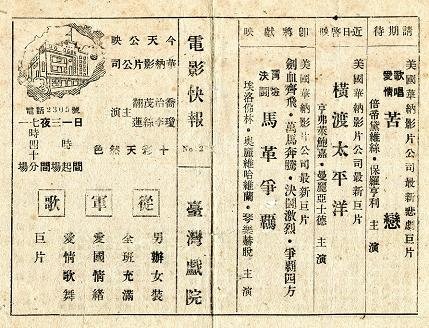 請期待
美國華納影片公司最新悲劇巨片
歌唱愛情
苦戀
倍蒂黛維絲・保羅亨利 主演
近日啓映
美國華納影片公司最新巨片
橫渡太平洋
亨弗萊鮑嘉・曼麗亞士德 主演
即將獻映
美國華納影片公司最新巨片
劍血齊飛・萬馬奔騰・決鬪激烈・爭霸四方
冒險決鬪
馬革爭霸
埃洛佛林・奧麗維哈維蘭・琴樂赫脫 主演
電影快報
No.2
臺灣戲院
今天公映
華納影片公司
喬治茂翩
李瓊絲蓮
主演
十彩天然色
電話2305號
日一三夜七一
時時四十
間起場間分場
從軍歌
男辦女裝
全班充滿
愛國情緒
愛情歌舞
巨片